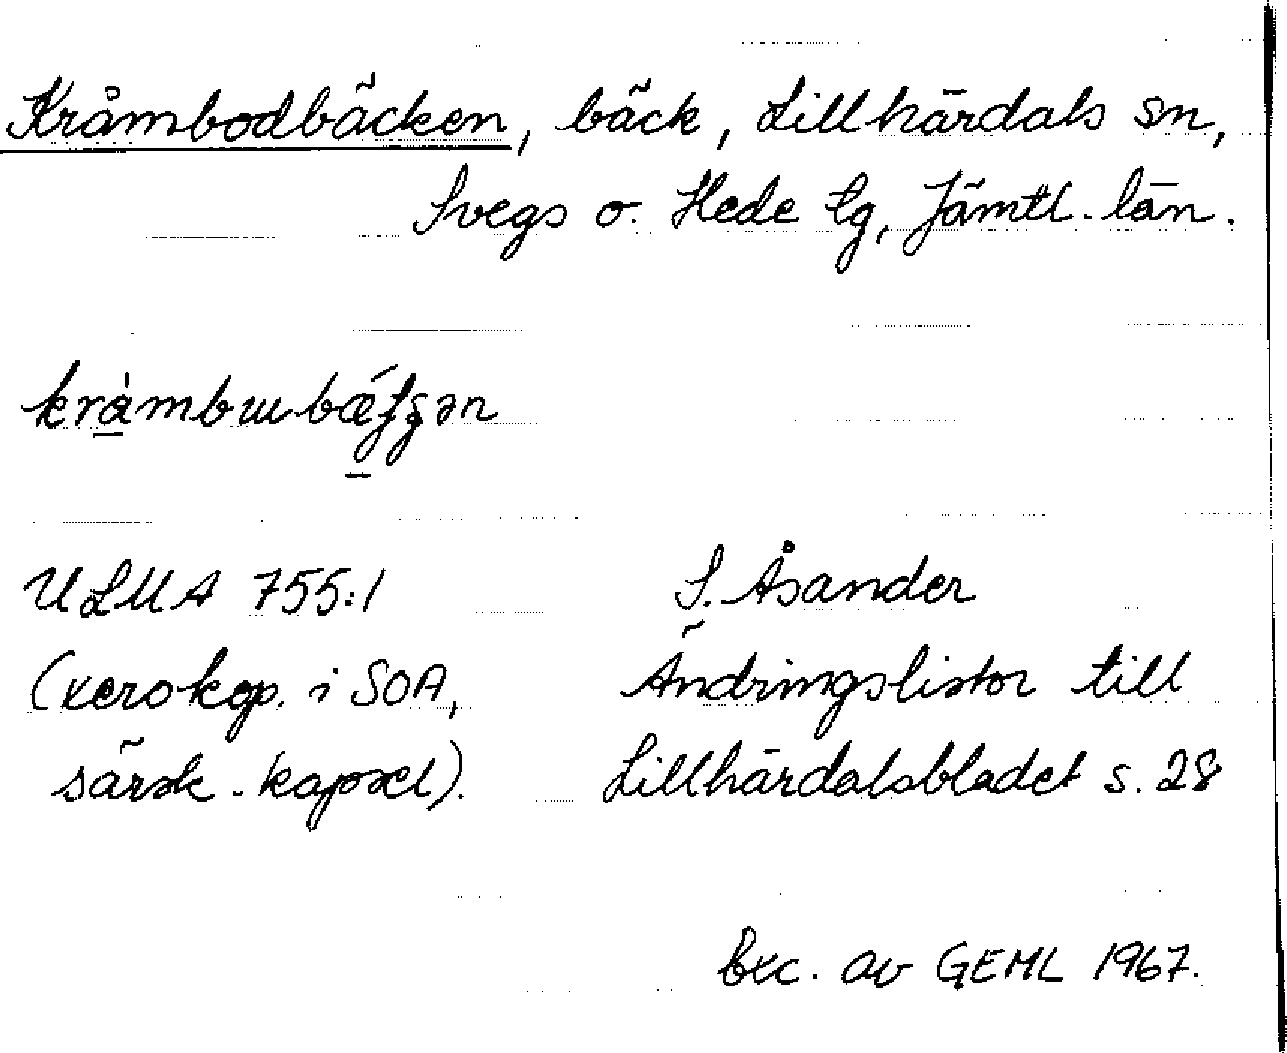 Kråmbodbäcken, bäck, Lillhärdals sn,
Svegs o. Hede tg, Jämtl. län.
kràmbɯbǽʃʂən
ULMA 755:1 S. Åsander
(xerokop. i SOA, Ändringslistor till
särsk. kapsel). Lillhärdalsbladet s. 28
Exc. av GEML 1967.